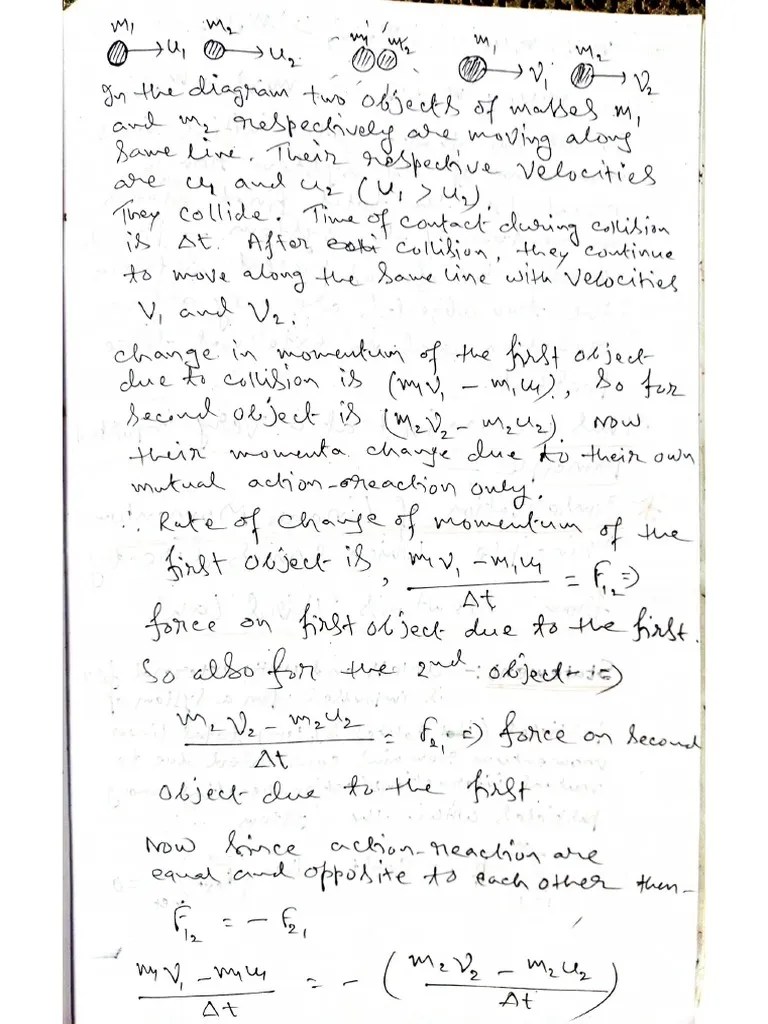 m₁ m₂ m₁ m₂ m₁ m₂
→u₁ →u₂ →v₁ →v₂
In the diagram two objects of masses m₁
and m₂ respectively are moving along
same line. Their respective velocities
are u₁ and u₂ (u₁ > u₂).
They collide. Time of contact during collision
is Δt. After collision, they continue
to move along the same line with velocities
v₁ and v₂.
change in momentum of the first object
due to collision is (m₁v₁ - m₁u₁), so for
second object is (m₂v₂ - m₂u₂). Now
their momenta change due to their own
mutual action-reaction only.
∴ Rate of change of momentum of the
first object is, (m₁v₁ - m₁u₁)/Δt = F₁₂ ⇒
force on first object due to the first.
So also for the 2nd object ⇒
(m₂v₂ - m₂u₂)/Δt = F₂₁ ⇒ force on second
object due to the first.
Now since action-reaction are
equal and opposite to each other then-
F₁₂ = - F₂₁
(m₁v₁ - m₁u₁)/Δt = - ((m₂v₂ - m₂u₂)/Δt)